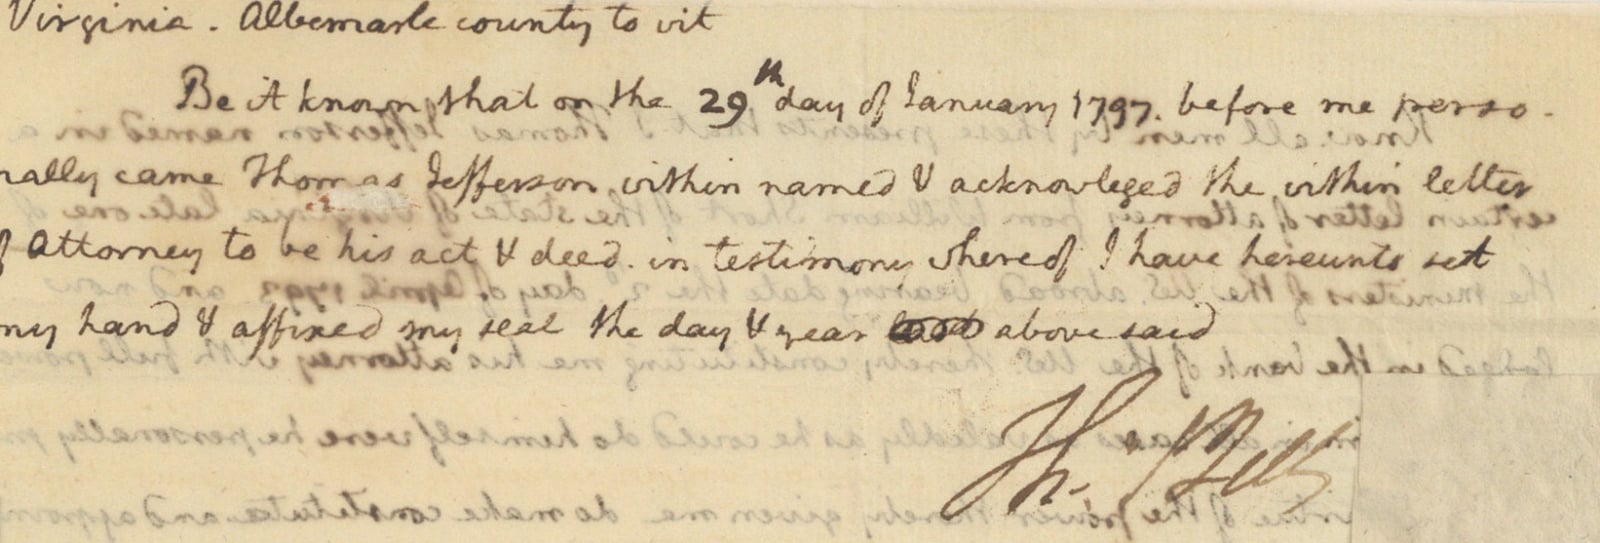 Virginia. Albemarle county to wit
Be it known that on the 29th day of January 1797. before me perso-
nally came Thomas Jefferson within named & acknowleged the within letter
of Attorney to be his act & deed. in testimony whereof I have hereunto set
my hand & affixed my seal the day & year above said
Th. Bell